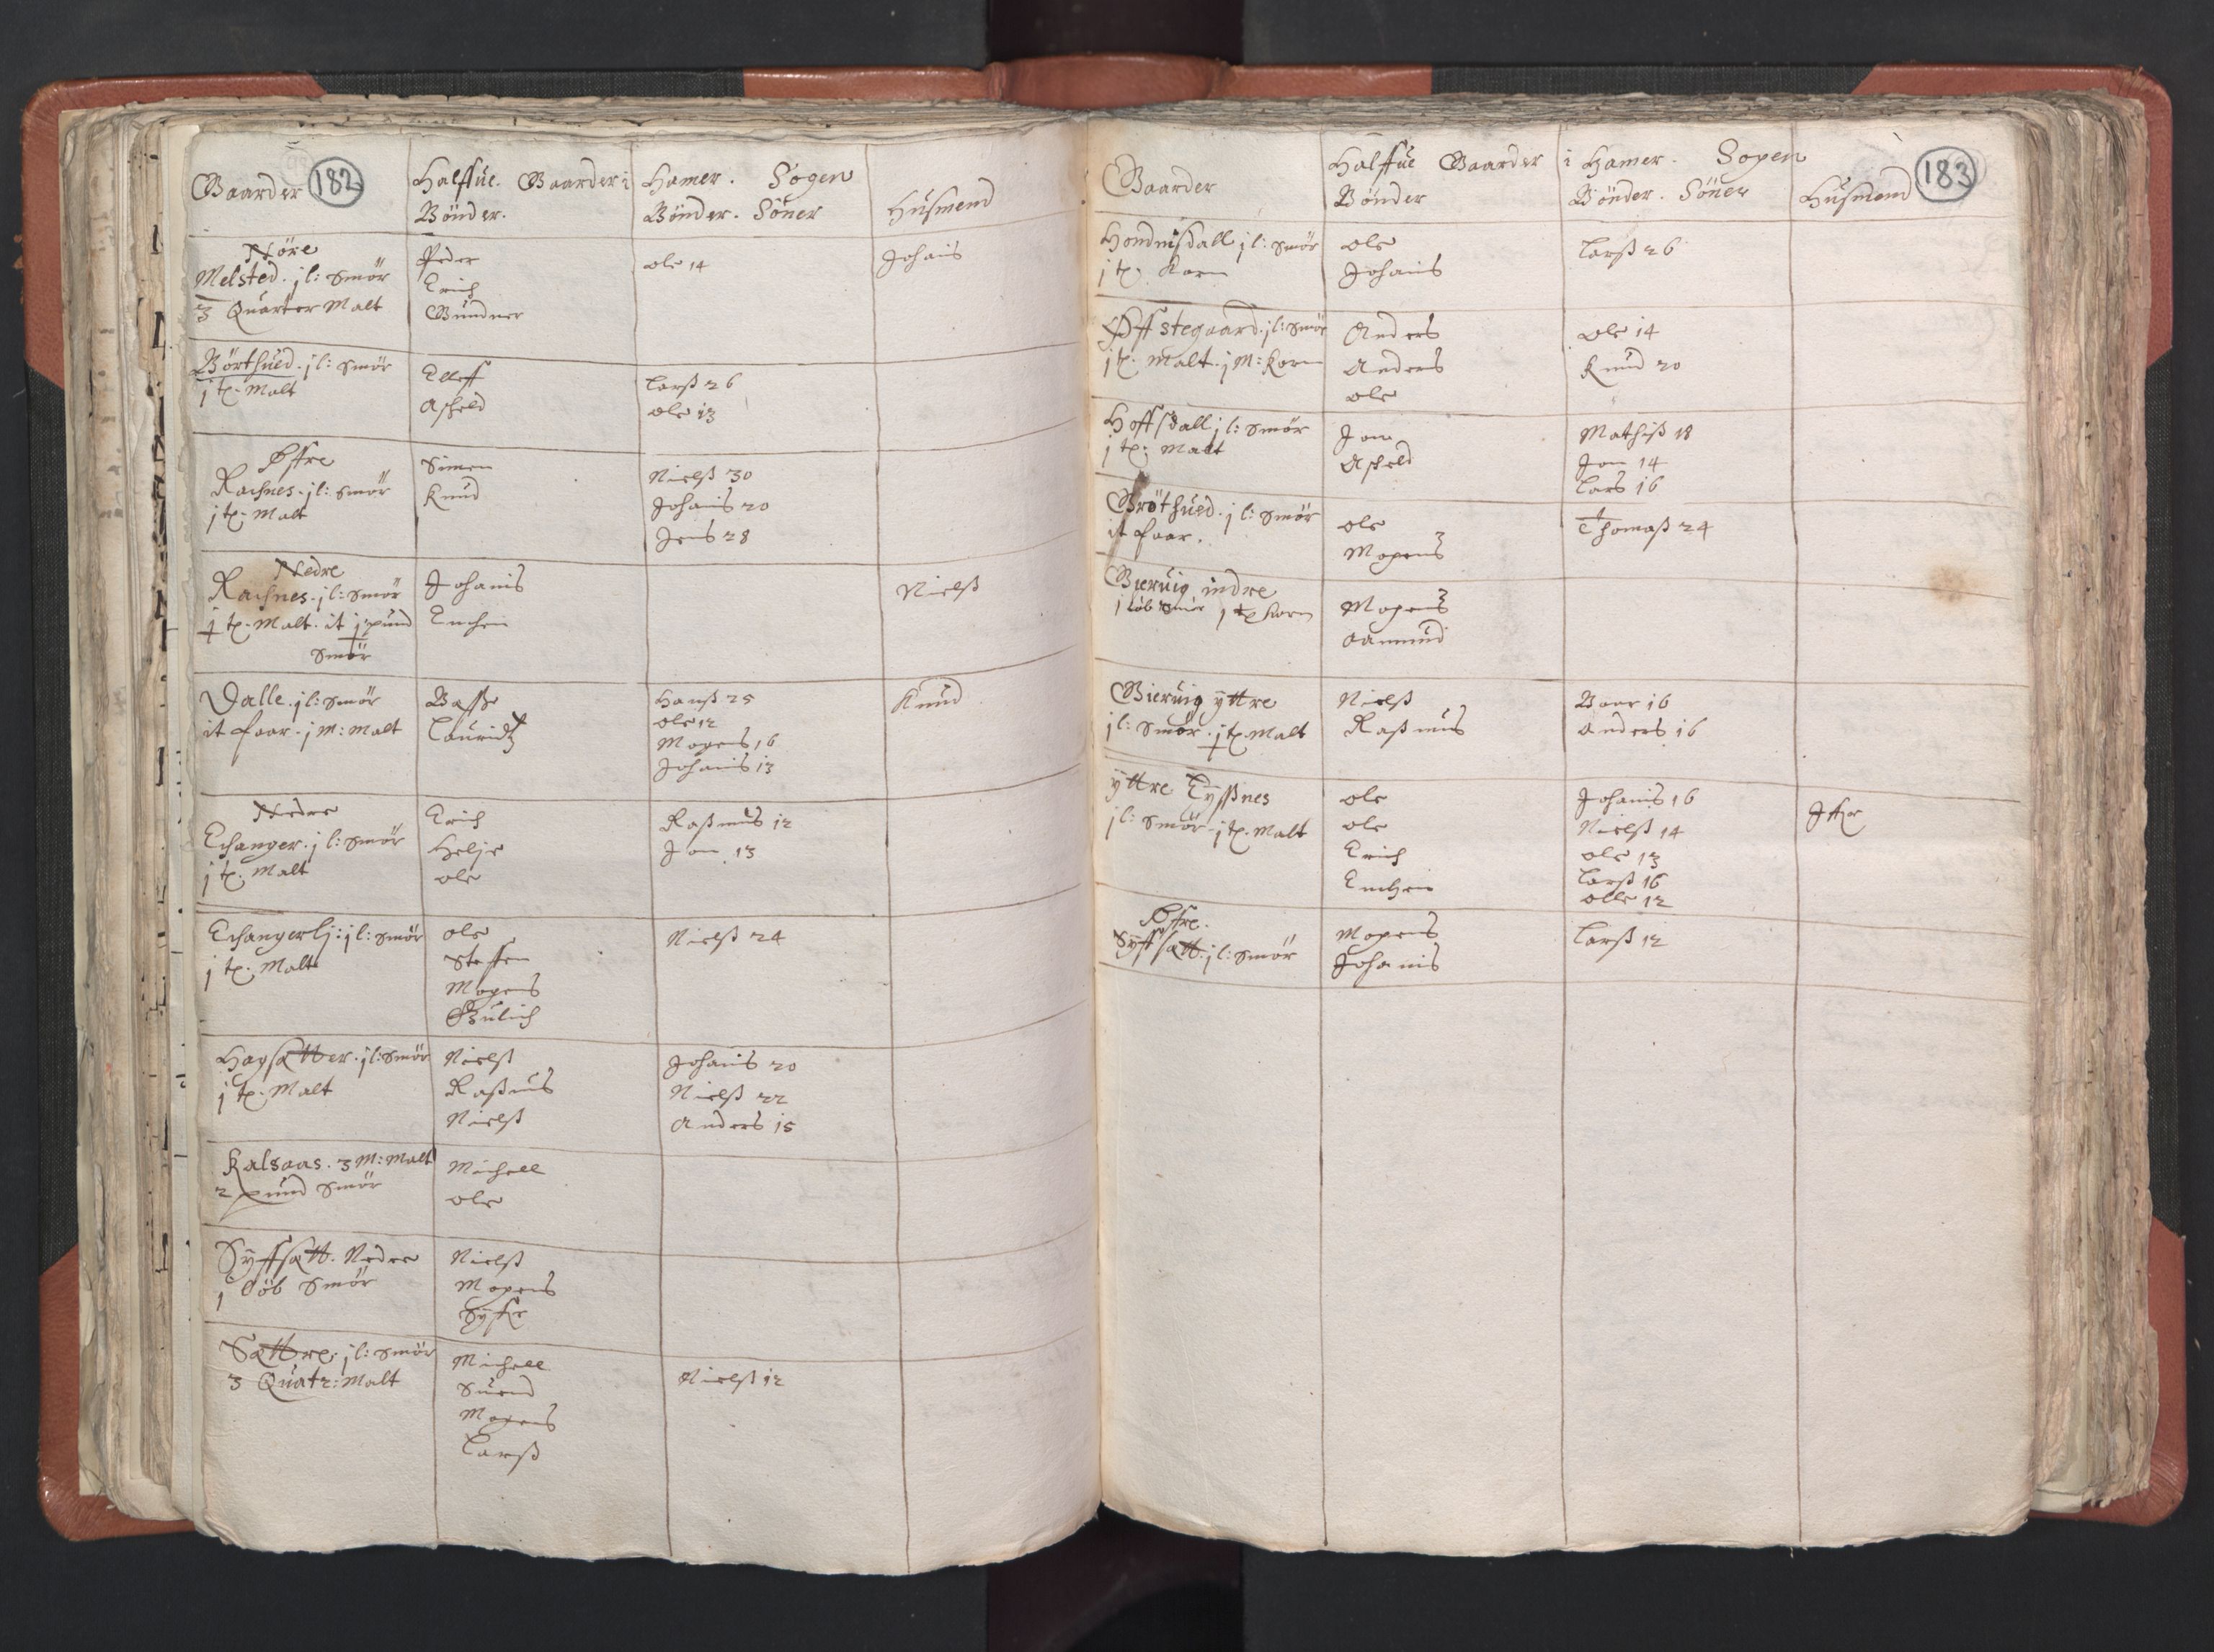 Gaarder 182 Halffue. Gaarder i Hamer. Sogen
Bönder. Bönder. Söner Hüsmend
Nöre
Melsted. j l: Smör
3 Quarter Malt
Peder
Erich
Gundner
ole 14
Johanis
Börthued. j l: Smör
j tp. Malt
Elleff
Askeld
Larß 26
ole 13
Øffre
Rachnes. j l: Smör
j tp. Malt
Simen
Knud
Nielß 30
Johanis 20
Jens 28
Nedre
Rachnes. j l: Smör
j tp. Malt. it j pund
Smör
Johanis
Nielß
Dalle. j l: Smör
it faar. j M: Malt
Basse
Lauridtz
Hanß 25
ole 12
Mogens 16
Johanis 13
Knud
Nedre
Echanger. j l: Smör
j tp. Malt
Erich
Helje
ole
Raßmus 12
Jon 13
Echangerlj: j l: Smör
j tp. Malt
ole
Steffen
Mogens
Nielß 24
Hagsætter. j l: Smör
j tp. Malt
Nielß
Raßmus
Nielß
Johanis 20
Nielß 22
Anders 15
Kalsaas. 3 M: Malt
2 pund Smör
Michell
ole
Syffsætt. Nedre
1 Löb Smör
Nielß
Mogens
Sættre: j l: Smör
3 Quatr: Malt
Michell
Suend
Mogens
Larß
Nielß 12
Gaarder
Halffue Gaarder i Hamer. Sogen
Bönder Bönder. Söner Hüsmend 183
Hondnisdall j l: Smör
j tp. Korn
ole
Johanis
Larß 26
Øffstegaard. j l: Smör
j tp. Malt. j M: Korn
Anders
Anders
ole
ole 14
Knud 20
Hoffsdall j l: Smör
j tp: Malt
Jon
Askeld
Mathiß 18
Jon 14
Lars 16
Gröthued. j l: Smör
it faar.
ole
Mogens
Thomaß 24
Bieruig indre
1 Löb Smör 1 tp Korn
Mogens
Aammud
Bieruig yttre
j l: Smör. j tp. Malt
Nielß
Raßmus
Baar 16
Anders 16
yttre Tyssnes
j l: Smör. j tp. Malt
ole
ole
Erich
Johanis 16
Nielß 14
ole 13
Larß 16
olle 12
Øffre.
Syffsætt. j l: Smör
Mogens
Johanis
Larß 12